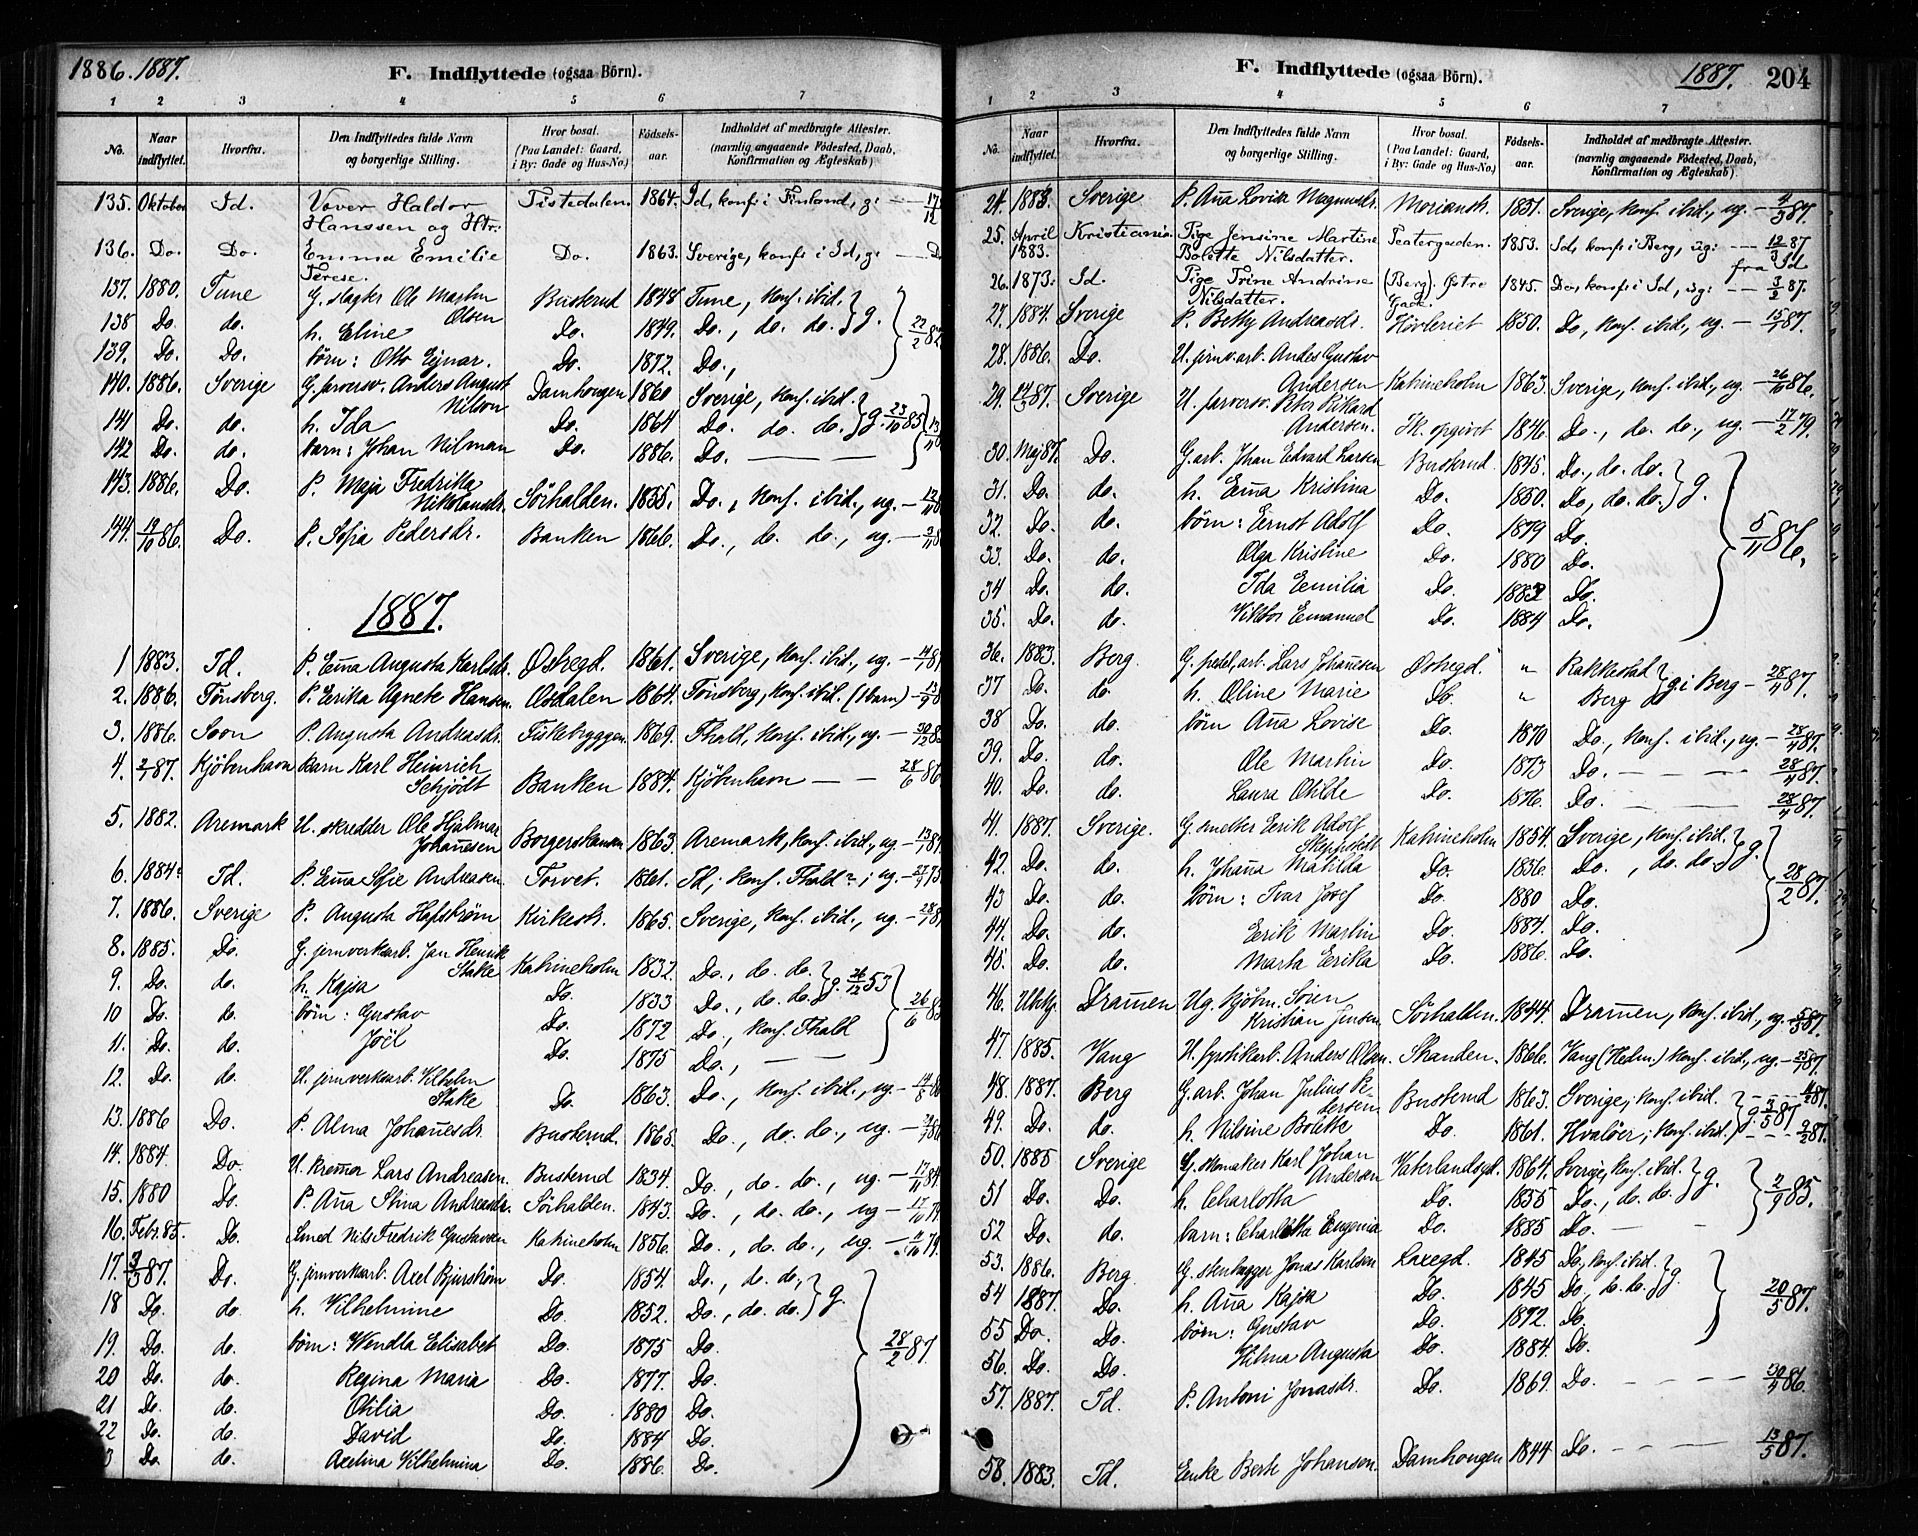 1886. 1887.
F. Indflyttede (ogsaa Börn).
1 2 3 4 5 6 7
No. Naar indflyttet. Hvorfra. Den Indflyttedes fulde Navn og borgerlige Stilling. Hvor bosat. (Paa Landet: Gaard, i By: Gade og Hus-No.) Födsels-aar. Indholdet af medbragte Attester. (navnlig angaaende Födested, Daab, Konfirmation og Ægteskab)
135. Oktober Id. Væver Haldor Tistedalen 1864. Id, konf. i Finland, g: —
Hanssen og Htr:
136. Do. Do. Emma Emilie Do. 1863. Sverige, konf. i Id, g: — D
Terese.
137. 1880. Tune G. slagter Ole Martin Olsen Buskerud 1848 Tune, konf. ibid. } g.
138 Do. do. h. Eline Do. 1849. Do., do. do.
139. Do. Do. börn: Otto Ejnar. Do. 1872. Do.,
140. 1886. Sverige G. farversv. Anders August Nilson Damhougen 1860 Sverige, konf. ibid. } g. 23/10 85
141 Do. do. h. Ida Do. 1864 Do. do. do.
142 Do. do. barn: Johan Nilman Do. 1886. Do. — —
143. 1886. Do. P. Maja Fredrikka Nikolausdr. Sörhalden. 1855. Do., konf. ibid., ug. —
144. 19/10 86. Do. P. Sofia Pedersdr. Banken 1866. Do., do. do., ug. —
1887.
1 1883. Id. P. Emma Augusta Karlsdr. Ostregd. 1861. Sverige, konf. ibid., ug. —
2. 1886. Tönsberg. P. Erika Agnete Hansen. Osdalen 1864. Tönsberg, konf. ibid. (1 barn) —
3. 1886. Soon P. Augusta Andreasdr. Fiskebryggen. 1869. Fhald, konf. ibid., ug. —
4. 2/1 87. Kjöbenhavn Barn Karl Heinrich Schjödt Banken 1884. Kjöbenhavn — — 28/6 86
5. 1882. Aremark U. skredder Ole Hjalmar Johannesen Borgerskansen 1863. Aremark, konf. ibid., ug —
6. 1884. Id. P. Emma Sofie Andreasen. Torvet. 1861. Id, konf. Fhald; ug. —
7. 1886. Sverige P. Augusta Hafström Kirkestr. 1865. Sverige, konf. ibid., ug. —
8. 1885. Do. G. jernverksarb. Jan Henrik Stake Katrineholm 1832. Do., do. do. } g. 26/12 53
9. Do. do. h. Kajsa Do. 1833 Do., do. do.
10 Do. do. börn: Gustav Do. 1872 Do., konf. Fhald
11. Do. do. Joël Do. 1875 Do., — —
12. Do. do. U. jernverksarb. Vilhelm Stake Do. 1863. Do., konf. ibid., ug. —
13. 1886 Do. P. Alma Johannesdr. Buskerud. 1868. Do., do. do., ug. —
14. 1884 Do. U. kremmer Lars Andreasen. Buskerud 1834. Do., do. do., ug. —
15. 1880 Do. P. Anna Stina Andreasdr. Sörhalden. 1843. Do., do. do., ug —
16. Febr. 85. Do. Smed Nils Fredrik Gustavsen Katrineholm 1856. Do., do. do., ug. —
17. 87. Do. G. jernverksarb. Axel Bjurström Do. 1854. Do., do. do., } g.
18 Do. do. h. Vilhelmine Do. 1852. Do., do. do.
19. Do. do. börn: Wendla Elisabet Do. 1875 Do. 28/2 87.
20 Do. do. Regina Maria Do. 1877. Do.
21 Do. do. Otilia Do. 1880 Do.
22 Do. do. David Do. 1884 Do.
3 Do. do. Axelina Vilhelmina Do. 1886. Do.
F. Indflyttede (ogsaa Börn). 1887. 204
1 2 3 4 5 6 7
No. Naar indflyttet. Hvorfra. Den Indflyttedes fulde Navn og borgerlige Stilling. Hvor bosat. (Paa Landet: Gaard, i By: Gade og Hus-No.) Födsels-aar. Indholdet af medbragte Attester. (navnlig angaaende Födested, Daab, Konfirmation og Ægteskab.)
24. 1883. Sverige P. Anna Lovisa Magnusdr. 1851. Sverige, konf. ibid., ug. — 87.
25. April 1883. Kristiania. Pige Jensine Martine Bolette Nilsdatter. Teatergaden. 1853. Id, konf. i Berg, ug: — 12/3 87 fra Id
26. 1873. Id. Pige Trine Andrine Nilsdatter. (Berg). Östre Gade. 1845. Do, konf. i Id, ug: — 3/2 87.
27. 1884. Sverige P. Betty Andreasdr. Hövleriet 1850. Do, konf. ibid., ug. — 15/1 87.
28. 1886. Do. U. jernv.arb. Andes Gustav Andersen Katrineholm 1863. Sverige, konf. ibid., ug — 26/10 86.
29. 24/3 87. Sverige U. farversv. Peter Rikard Andersen. Ik. opgivet 1846. Do., do. do., ug. — 17/2 79.
30. Maj 87. Do. G. arb. Johan Edvard Larsen Buskerud 1845. Do., do. do. } g.
31. Do. do. h. Emma Kristina Do. 1850. Do., do. do.
32. Do. do. börn: Ernst Adolf Do. 1879 Do. 5/11 86.
33. Do. do. Olga Kristine Do. 1880 Do.
34 Do. do. Ida Emilia Do. 1882 Do.
35. Do. do. Viktor Emanuel Do. 1884 Do.
36. 1883. Berg. G. pertel.arb. Lars Johannesen Ostregd. " Rakkestad } g. i Berg — 28/4 87.
37 Do. do. h. Oline Marie Do. " Berg
38 Do. do. börn Anna Lovise Do. 1870 Do., konf. ibid., ug. — 28/4 87.
39. Do. do. Ole Martin Do. 1873 Do. — — — 28/4 87.
40. Do. do. Laura Otilde Do. 1876. Do. — — — 28/4 87.
41. 1887. Sverige. G. smelter Erik Adolf Katrineholm 1854. Sverige, konf. ibid. } g.
42. Do. do. h. Johanna Matilda Do. 1856. Do., do. do. 28/2 87.
43 Do. do. börn: Ivar Josef Do. 1880 Do.
44. Do. do. Erik Martin Do. 1884. Do.
45. Do. do. Marta Erika Do. 1886. Do.
46. Dramen Ug. kjöbm. Sören Kristian Jensen Sörhalden. 1844. Dramen, konf. ibid., ug. 87.
47. 1885. Vang U. fyrstikarb. Anders Olsen. Skanden. 1866. Vang (Hedm.) konf. ibid., ug. — 87.
48. 1887. Berg G. arb. Johan Julius Pedersen Buskerud 1863. Sverige, konf. ibid. } g. 3/5 87
49. Do. do. h. Nilsine Bolette Do. 1861. Hvalöer, konf. ibid.
50. 1885 Sverige G. skomaker Karl Johan Andersen Vaterlandsgd. 1864. Sverige, konf. ibid. } g. 2/9 85.
51 Do. Do. h. Charlotta Do. 1855 Do., do. do.
52 Do. do. barn: Charlotta Eugenia Do. 1885 Do. —
53. 1886. Berg. G. stenhugger Jonas Karlsen Laxegd. 1845 Do., konf. ibid. } g.
54 1887. Do. h. Anna Kajsa Do. 1845 Do., do. do. 20/5 87.
55 Do. Do. börn: Gustav Do. 1872. Do.
56. Do. Do. Hilma Augusta Do. 1884. Do.
57. 1887. Id. P. Antoni Jonasdr. Do. 1869. Do. — — — 30/4 86.
58. 1883. Id. Enke Berte Johansen. Damhougen 1844 Do. — — — 13/5 87.